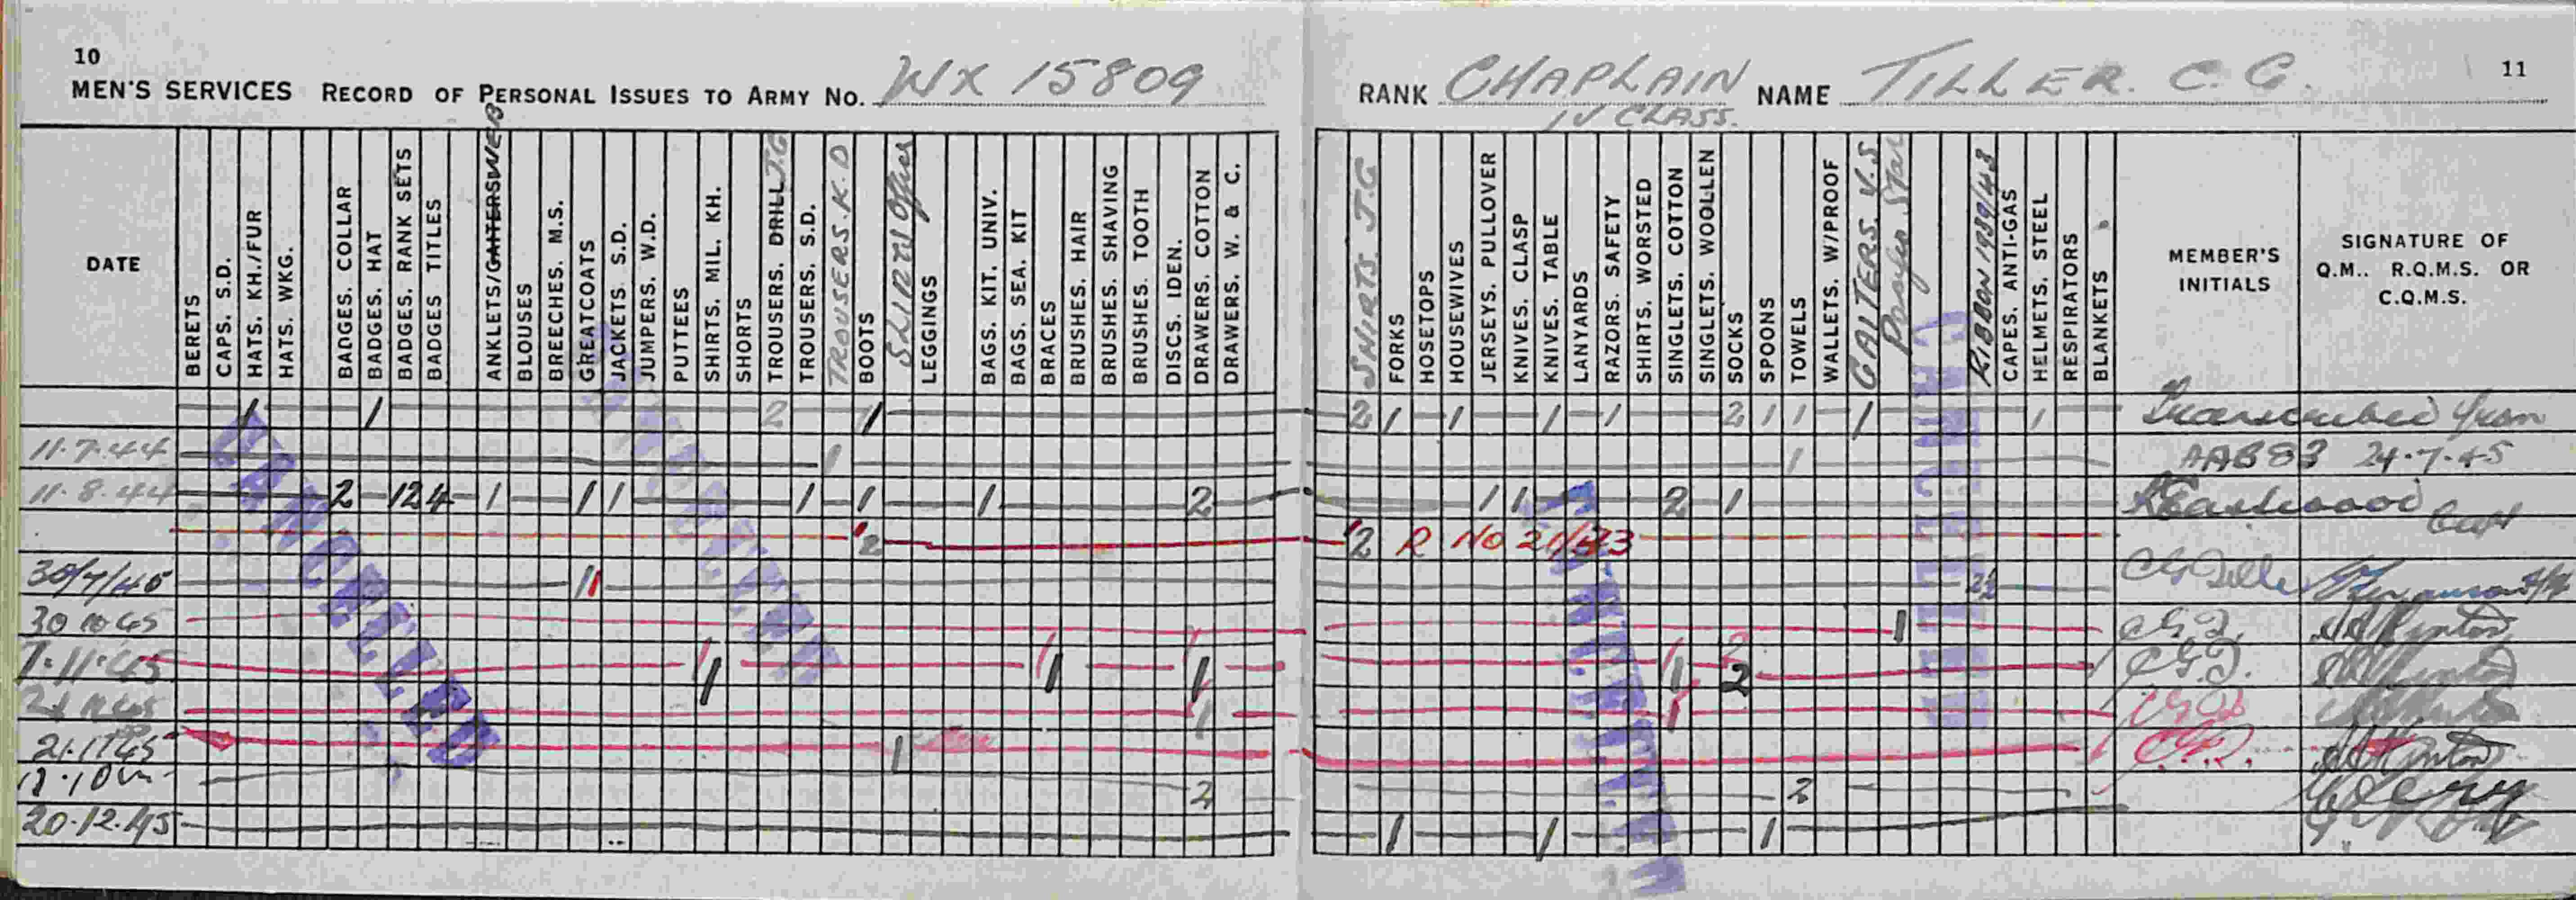 10
MEN'S SERVICES RECORD OF PERSONAL ISSUES TO ARMY No. WX 15809
RANK CHAPLAIN NAME TILLER. C. G. 11
IV CLASS.
DATE
BERETS
CAPS. S.D.
HATS. KH./FUR
HATS. WKG.
BADGES. COLLAR
BADGES. HAT
BADGES. RANK SETS
BADGES TITLES
ANKLETS/GAITERS WEB
BLOUSES
BREECHES. M.S.
GREATCOATS
JACKETS S.D.
JUMPERS. W.D.
PUTTEES
SHIRTS. MIL. KH.
SHORTS
TROUSERS. DRILL J.G
TROUSERS. S.D.
TROUSERS. K.D
BOOTS
SHIRTS Officer
LEGGINGS
BAGS. KIT. UNIV.
BAGS. SEA. KIT
BRACES
BRUSHES. HAIR
BRUSHES. SHAVING
BRUSHES. TOOTH
DISCS. IDEN.
DRAWERS. COTTON
DRAWERS. W. & C.
SHIRTS. J.G
FORKS
HOSETOPS
HOUSEWIVES
JERSEYS. PULLOVER
KNIVES. CLASP
KNIVES. TABLE
LANYARDS
RAZORS. SAFETY
SHIRTS. WORSTED
SINGLETS. COTTON
SINGLETS. WOOLLEN
SOCKS
SPOONS
TOWELS
WALLETS. W/PROOF
GAITERS. V.S
Pacific Star
RIBBON 1939/43
CAPES. ANTI-GAS
HELMETS. STEEL
RESPIRATORS
BLANKETS
MEMBER'S
INITIALS
SIGNATURE OF
Q.M.. R.Q.M.S. OR
C.Q.M.S.
1 1 2 1 2 1 1 1 1 2 1 1 1 1 Transcribed from
11.7.44 1 1 AAB 83 24.7.45
11.8.44 2 12 4 1 1 1 1 1 1 2 1 1 2 1 Eastwood Capt
2 2 R No
30/7/45 1 2½ CG Tiller
30 10 45 1 C.G.T.
7.11.45 1 1 1 1 2 C.G.T.
1 1
21.11.45 1
2 2
20.12.45 1 1 1
CANCELLED
CANCELLED
CANCELLED
CANCELLED